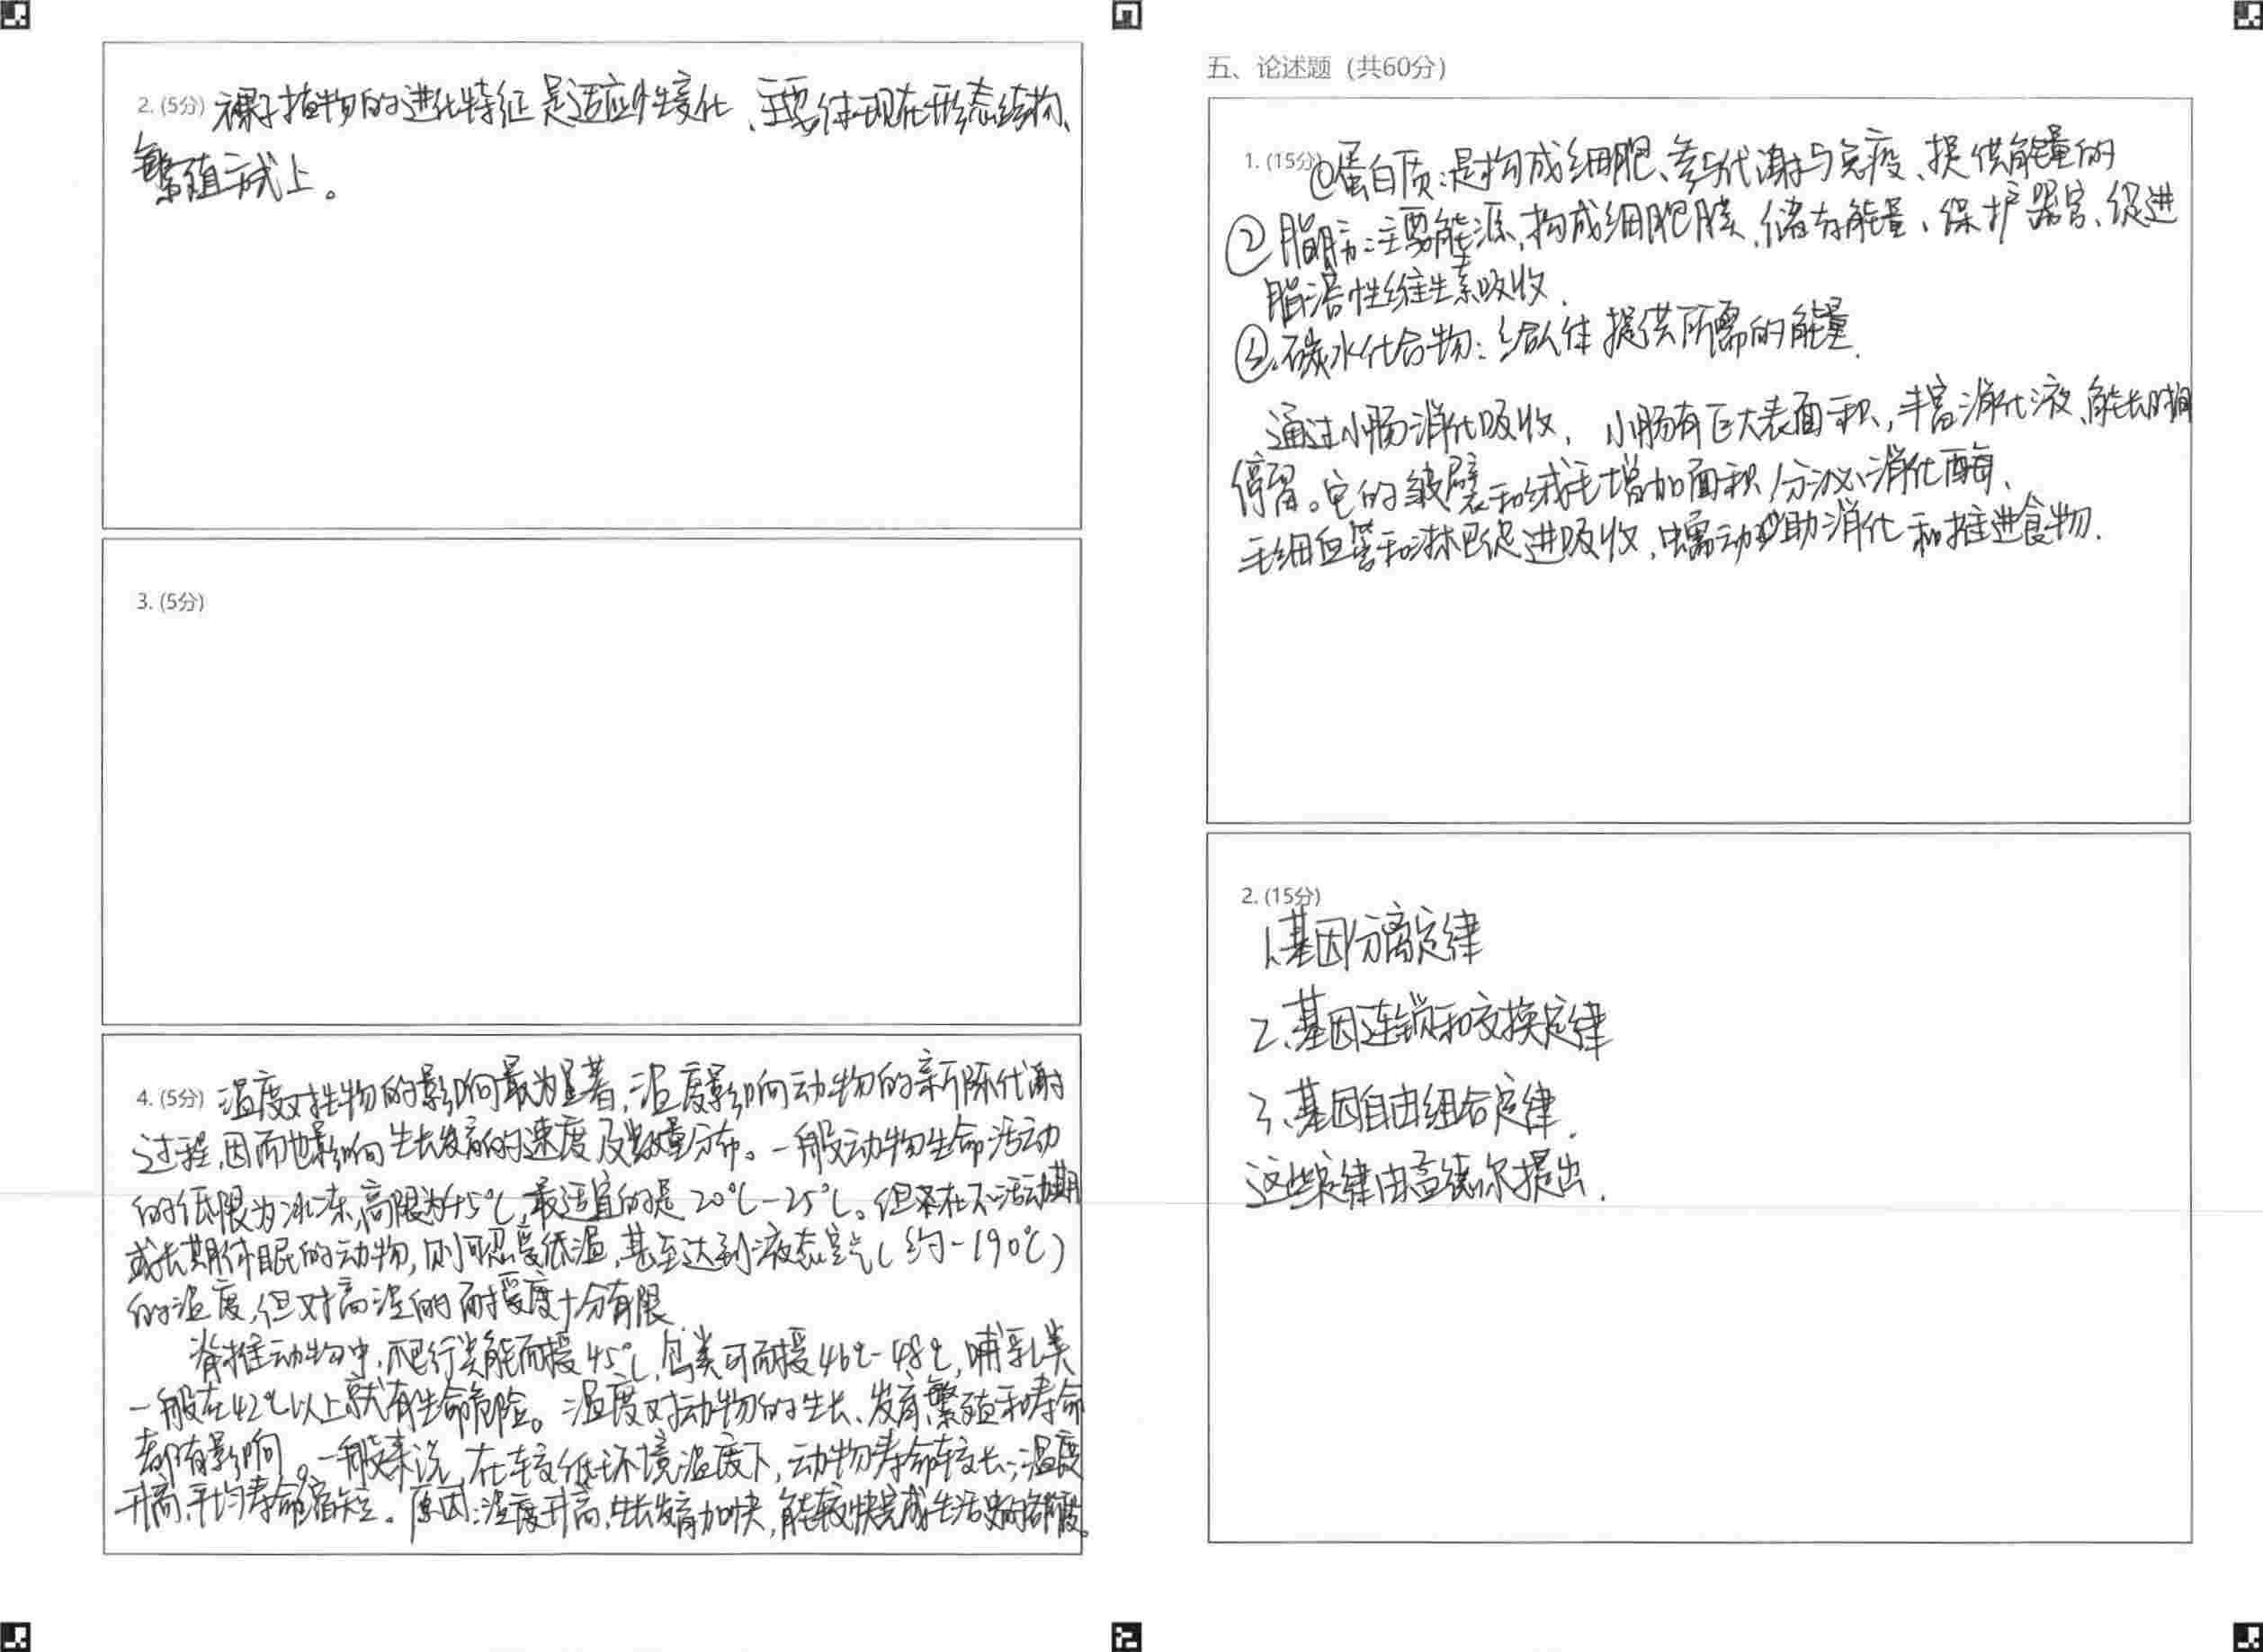 2. (5分) 裸子植物的进化特征是适应性变化、主要体现在形态结构、
繁殖方式上。
3. (5分)
4. (5分) 温度对生物的影响最为显著,温度影响动物的新陈代谢
过程,因而也影响生长发育的速度及数量分布。一般动物生命活动
的低限为冰冻,高限为45℃,最适宜的是20℃-25℃。但若在不活动期
或长期休眠的动物,则可忍受低温,甚至达到液态空气(约-190℃)
的温度,但对高温的耐受度十分有限.
脊椎动物中,爬行类能耐受45℃,鸟类可耐受46℃-48℃,哺乳类
一般在42℃以上就有生命危险。温度对动物的生长、发育、繁殖和寿命
都有影响。一般来说,在较低环境温度下,动物寿命较长;温度
升高,平均寿命缩短。原因:温度升高,生长发育加快,能较快完成生活史的各阶段。
五、论述题 (共60分)
1. (15分) ①蛋白质:是构成细胞、参与代谢与免疫、提供能量的
②脂肪:主要能源,构成细胞膜、储存能量、保护器官、促进
脂溶性维生素吸收.
③.碳水化合物:给人体提供所需的能量.
通过小肠消化吸收, 小肠有巨大表面积,丰富消化液、能长时间
停留。它的皱襞和绒毛增加面积,分泌消化酶、
毛细血管和淋巴促进吸收,蠕动助消化和推进食物.
2. (15分)
1.基因分离定律
2.基因连锁和交换定律
3.基因自由组合定律.
这些定律由孟德尔提出.